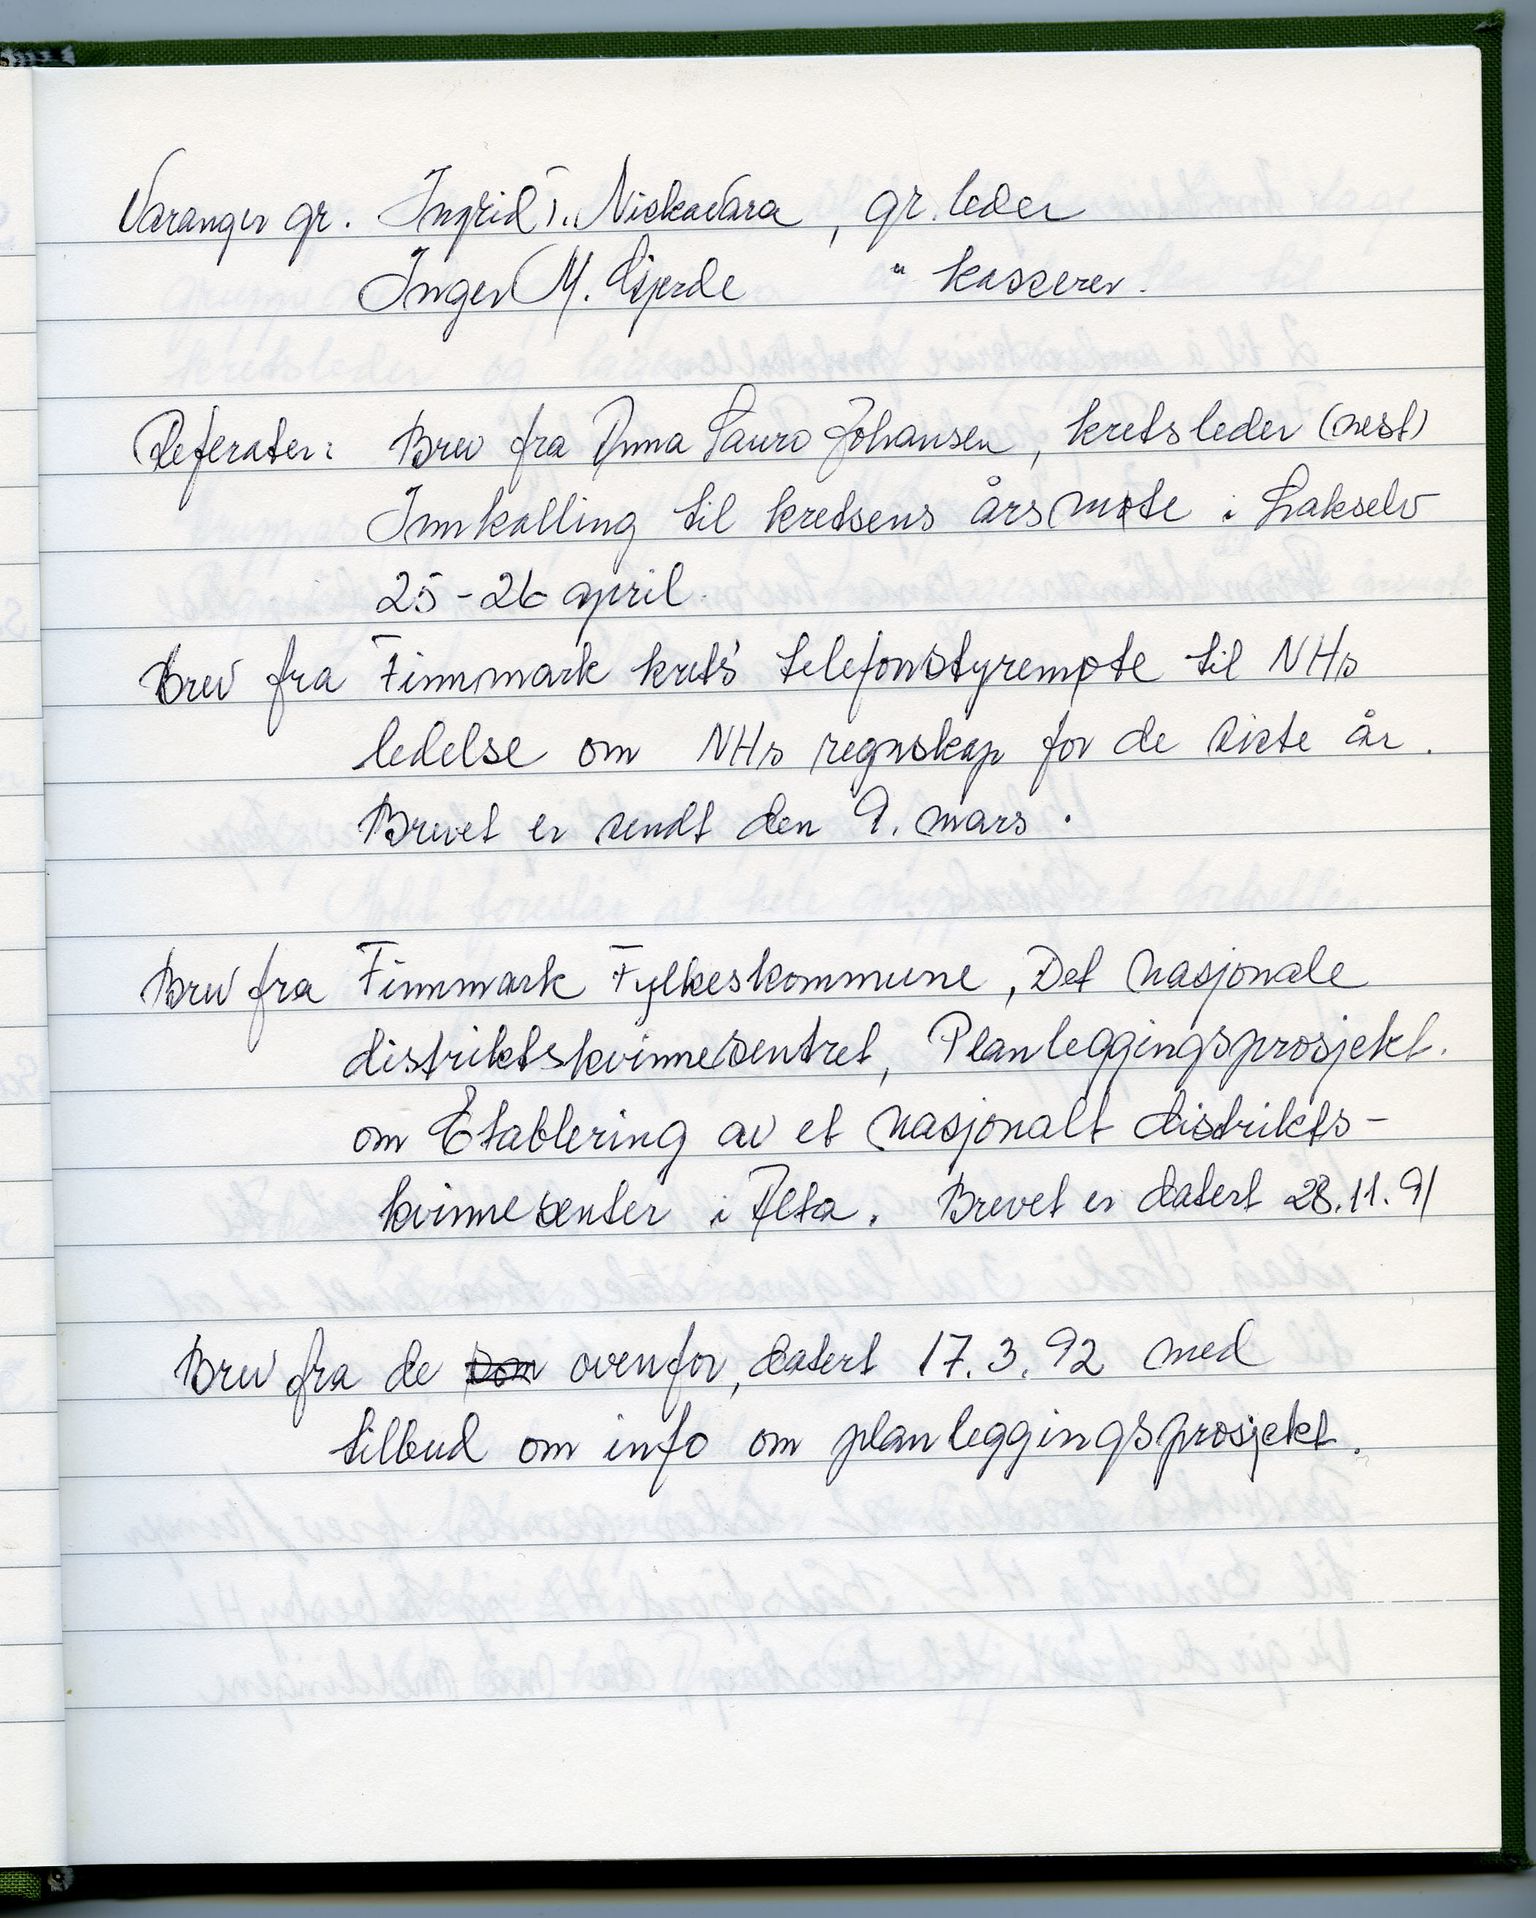 Varanger gr. Ingrid T. Niskavara, gr. leder
Inger M. Gjerde " kasserer.
Referater: Brev fra Anna Laura Johansen, kretsleder (nest)
Innkalling til kretsens årsmøte i Lakselv
25-26 april.
Brev fra Finnmark krets' telefonstyremøte til NHs
ledelse om NHs regnskap for de siste år.
Brevet er sendt den 9. mars.
Brev fra Finnmark Fylkeskommune, Det nasjonale
distriktskvinnesentret, Planleggingsprosjekt.
om Etablering av et nasjonalt distrikts-
kvinnesenter i Alta. Brevet er datert 28.11.91
Brev fra de ovenfor, datert 17.3.92 med
tilbud om info om planleggingsprosjekt.